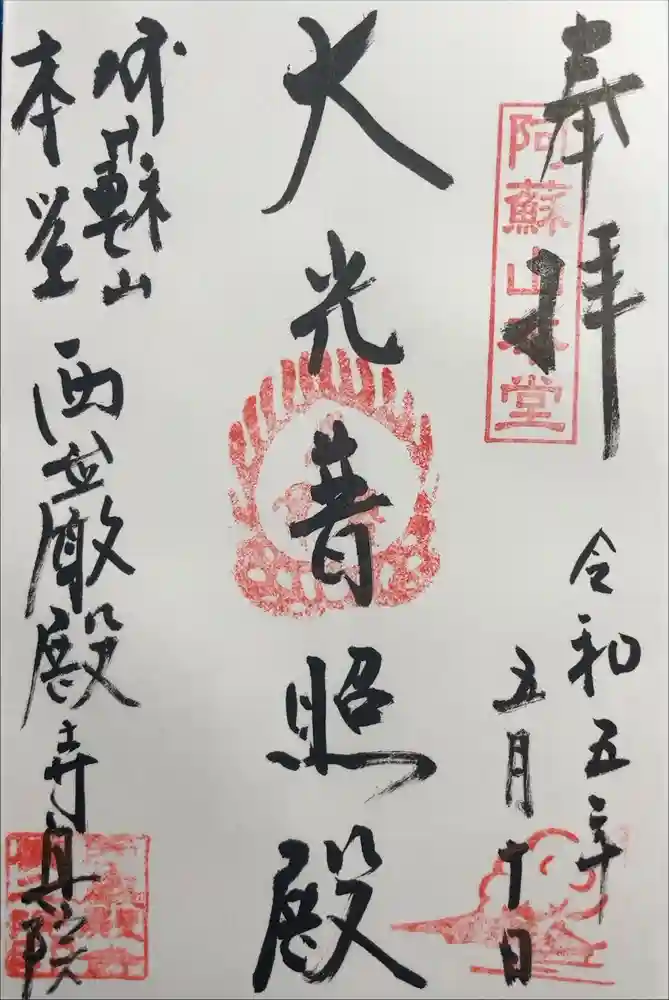 奉拝
阿蘇山本堂
令和五年
五月十日
大光普照殿
阿蘇山
本堂
西巌殿寺奥院